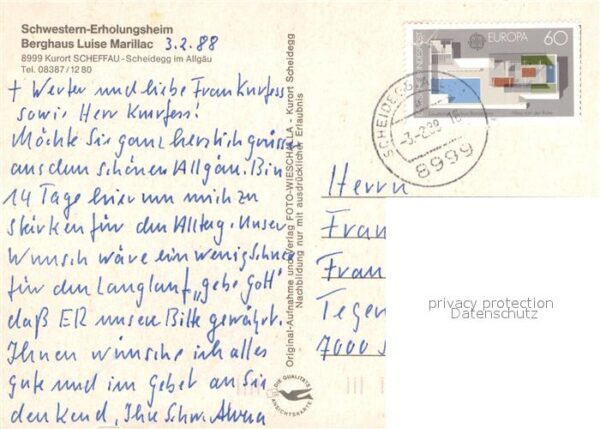 Schwestern-Erholungsheim
Berghaus Luise Marillac 3.2.88
8999 Kurort SCHEFFAU - Scheidegg im Allgäu
Tel. 08387/1280
+ Werter und liebe Frau Kurfess
sowie Herr Kurfess!
Möchte Sie ganz herzlich grüssen
aus dem schönen Allgäu. Bin
14 Tage hier um mich zu
stärken für den Alltag. Unser
Wunsch wäre ein wenig Schnee
für den Langlauf „gebe Gott"
daß ER unsere Bitte gewährt.
Ihnen wünsche ich alles
gute und im Gebet an Sie
denkend, Ihre Schw.
Original-Aufnahme und Verlag FOTO-WIESCHALLA - Kurort Scheidegg
Nachbildung nur mit ausdrücklicher Erlaubnis
DIE QUALITÄTS
ANSICHTSKARTE
EUROPA 60
SCHEIDEGG
8999
Herrn
Fran
Fran
Tegen
7000 S
privacy protection
Datenschutz